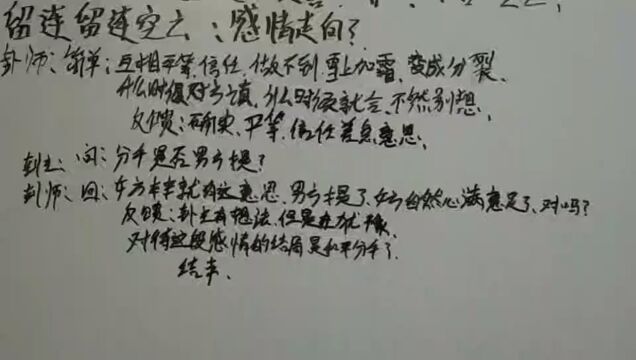 留连留连空亡：感情走向？
卦师：简单：互相平等、信任、做不到雪上加霜、变成分裂、
什么时候对方真，什么时候就合、不然别想、
反馈：确实、平等、信任差点意思、
卦主：问：分手是否男方提？
卦师：回：女方本来就有这意思、男方提了、女方自然心满意足了、对吗？
反馈：卦主有想法、但是在犹豫、
对待这段感情的结局是和平分手了、
结束、